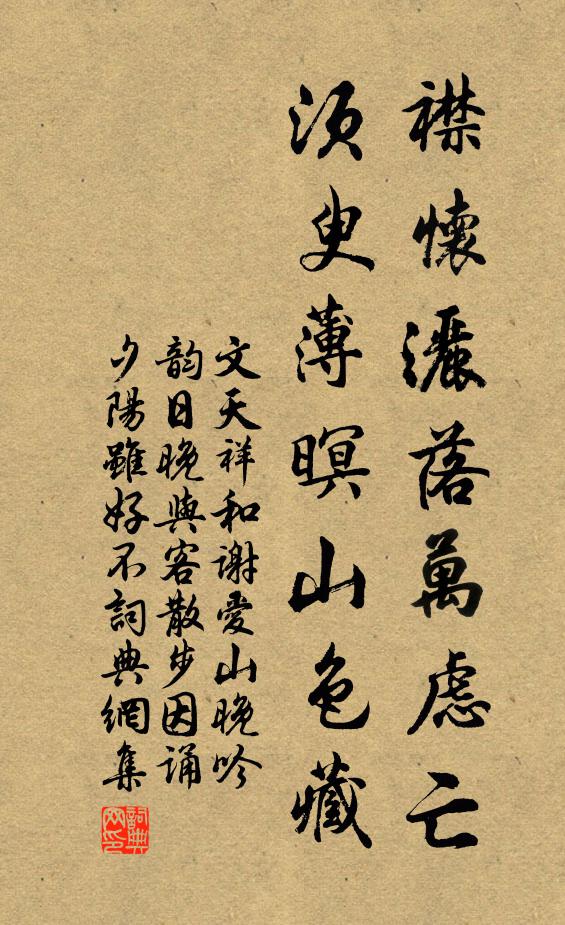 襟懷灑落萬慮亡
須臾薄暝山色藏
文天祥和謝愛山晚吟
韵日晚與客散步因誦
夕陽雖好不詞典網集
詞典网印